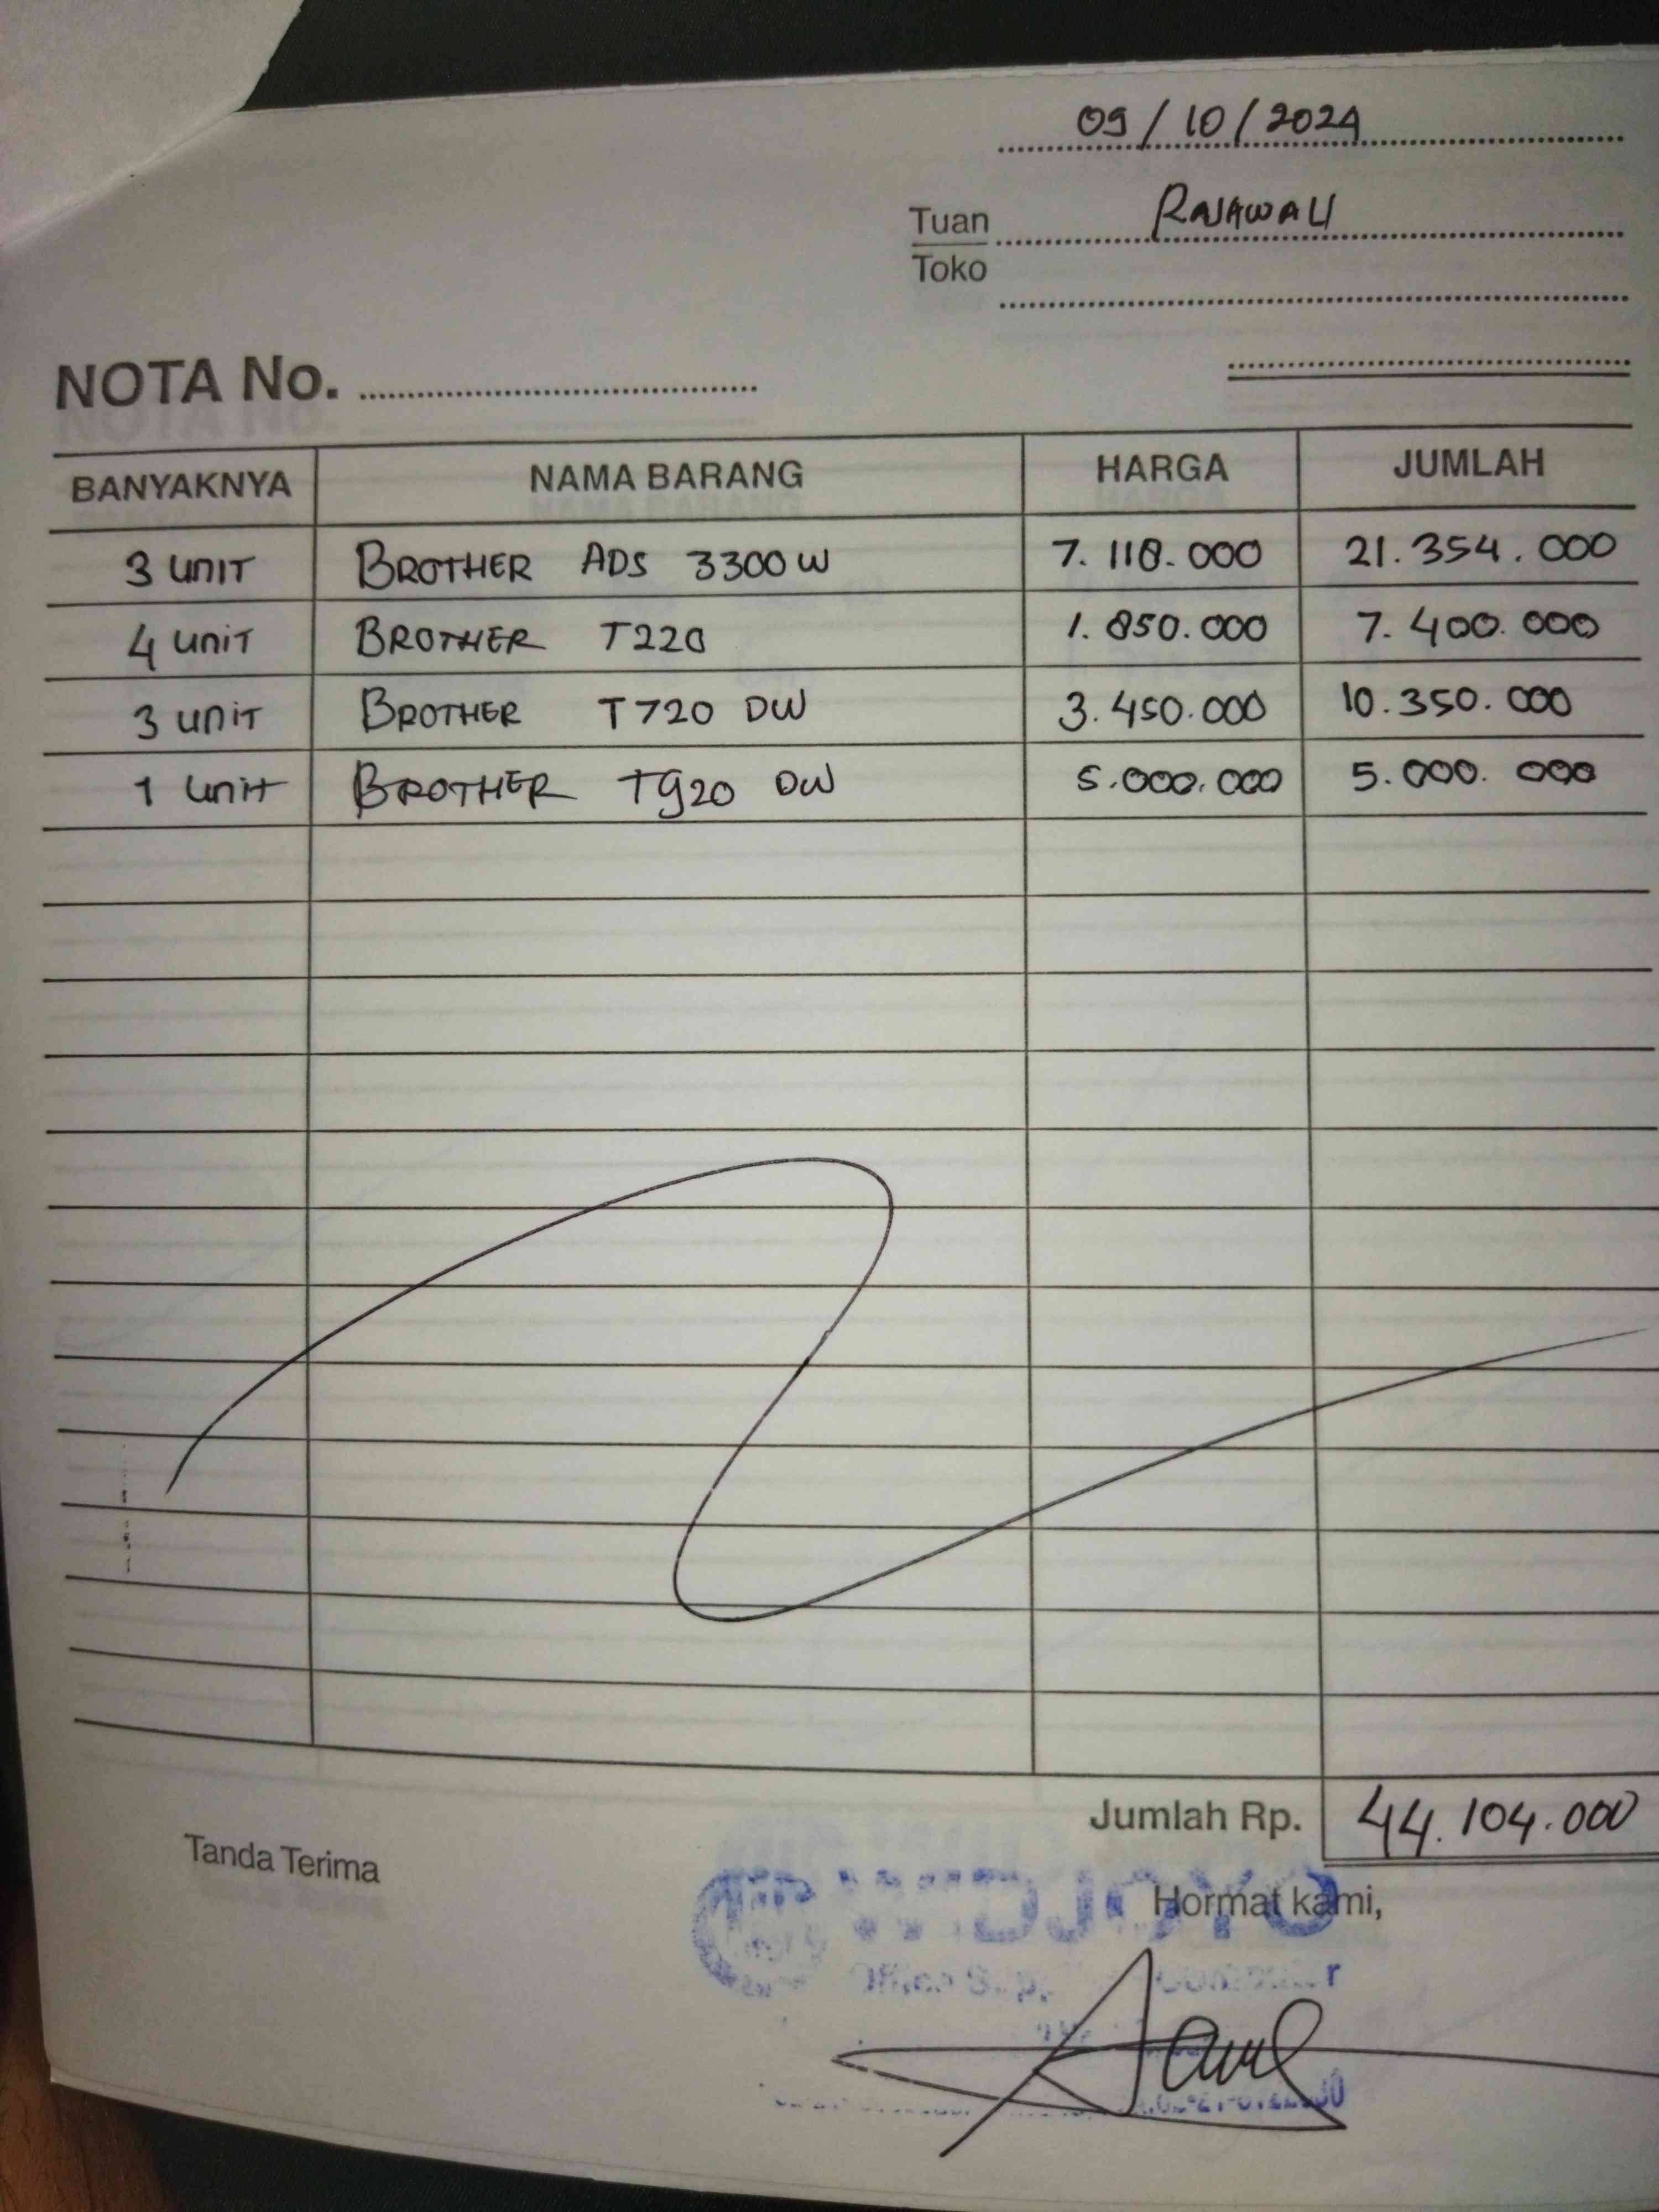 09/10/2024
Tuan RAJAWALI
Toko
NOTA No.
BANYAKNYA NAMA BARANG HARGA JUMLAH
3 UNIT BROTHER ADS 3300 W 7.118.000 21.354.000
4 UNIT BROTHER T220 1.850.000 7.400.000
3 UNIT BROTHER T720 DW 3.450.000 10.350.000
1 UNIT BROTHER T920 DW 5.000.000 5.000.000
Jumlah Rp. 44.104.000
Tanda Terima
Hormat kami,